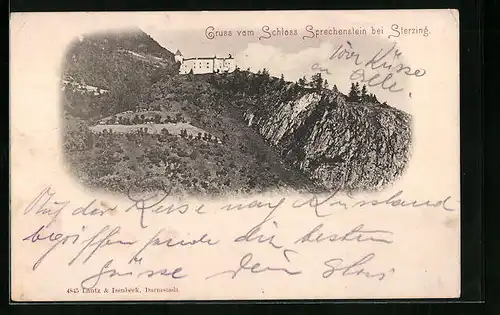 Gruss vom Schloss Sprechenstein bei Sterzing.
Küsse
an Alle.
Auf der Reise nach Russland
begriffen sende dir besten
Grüsse Dein
4845 Lautz & Isenbeck, Darmstadt.